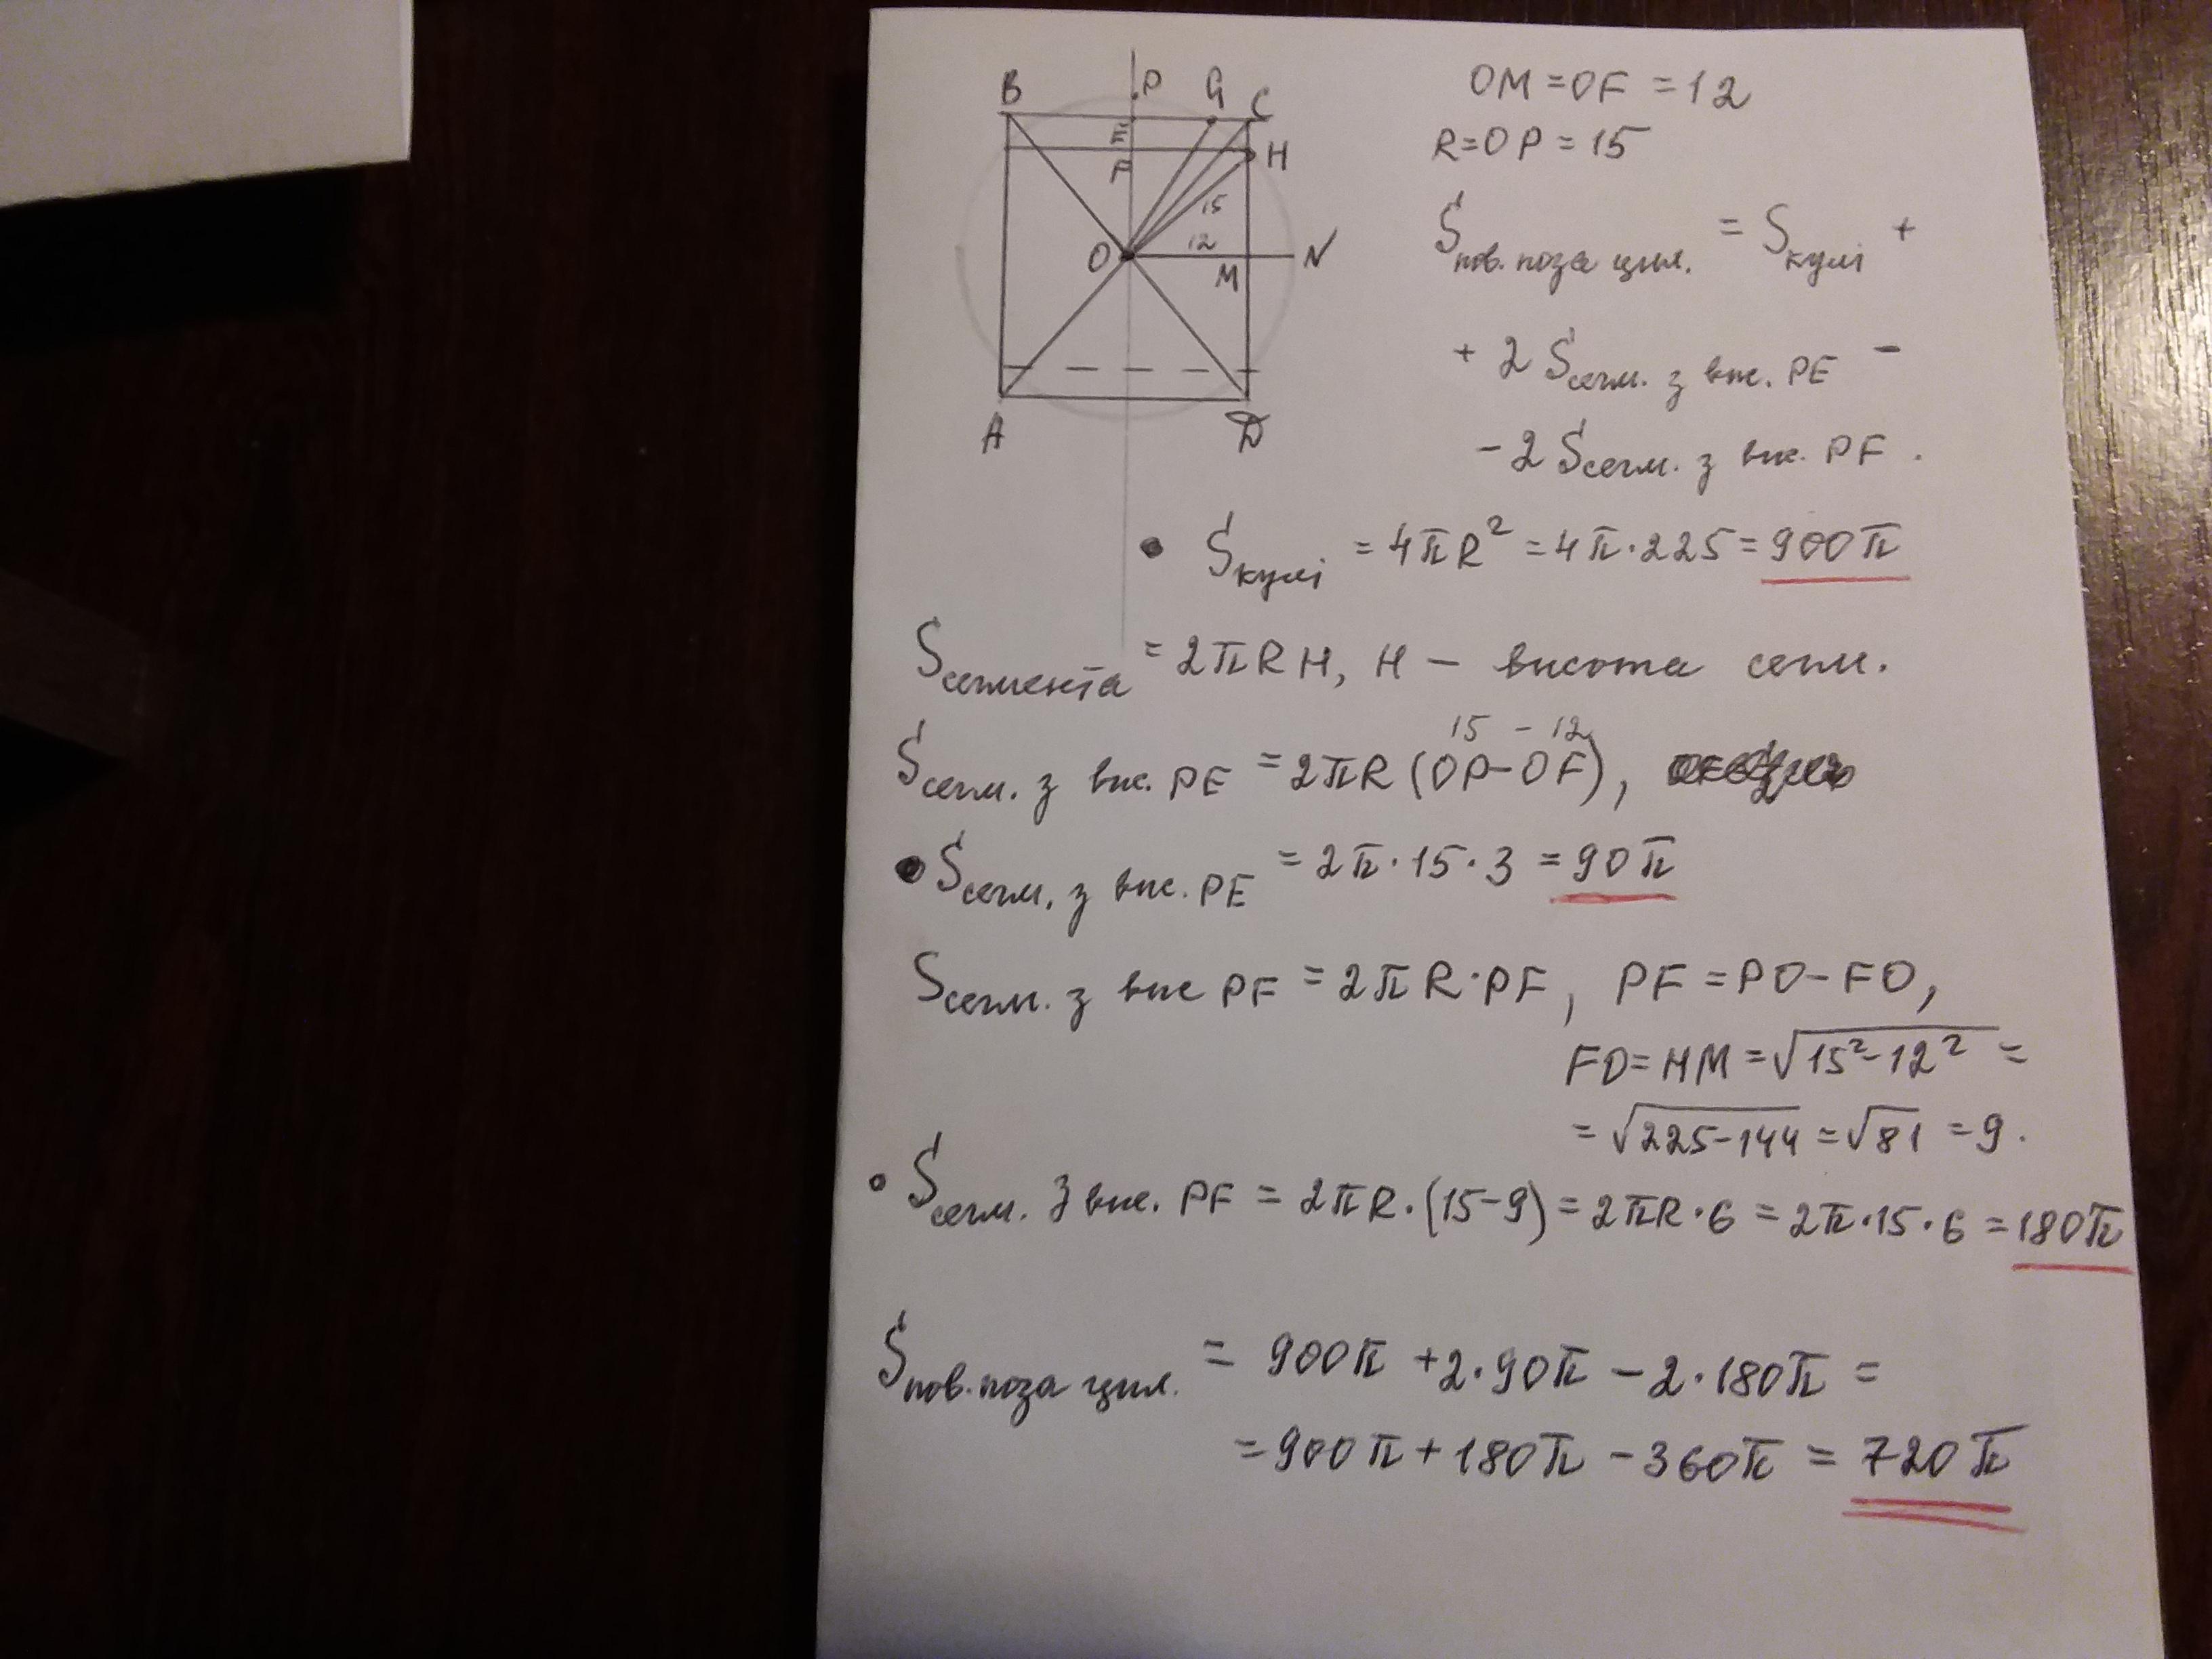 B P G C
E H
F
15
O 12 M N
A D
OM = OF = 12
R = OP = 15
S пов. поза цил. = S кулі +
+ 2 S сегм. з вис. PE -
- 2 S сегм. з вис. PF .
• S кулі = 4πR² = 4π·225 = 900π
S сегмента = 2πRH, H — висота сегм.
15 - 12
S сегм. з вис. PE = 2πR (OP-OF),
• S сегм. з вис. PE = 2π·15·3 = 90π
S сегм. з вис PF = 2πR·PF, PF = PO-FO,
FO = HM = √15²-12² =
= √225-144 = √81 = 9.
• S сегм. з вис. PF = 2πR·(15-9) = 2πR·6 = 2π·15·6 = 180π
S пов. поза цил. = 900π + 2·90π - 2·180π =
= 900π + 180π - 360π = 720π